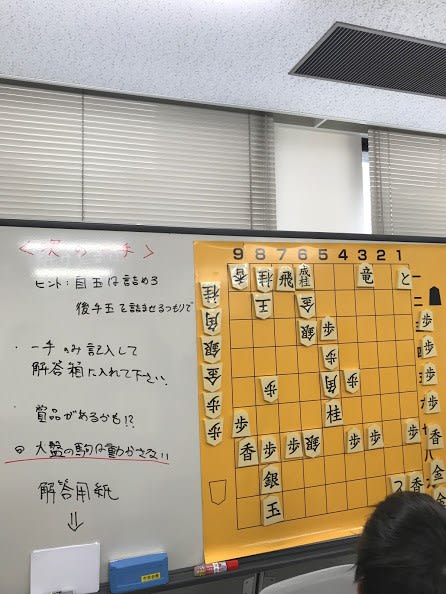 <次の一手>
ヒント:自玉は詰めろ
後手玉を詰ませるつもりで
・一手のみ記入して
解答箱に入れて下さい.
・賞品があるかも!?
◎大盤の駒は動かさない!!
解答用紙
9 8 7 6 5 4 3 2 1
香 桂 飛 成桂 竜 と 一
玉 金 二
銀 歩
歩
歩 角 歩
歩 桂
香 歩 歩 銀 歩 歩 歩
銀
玉
桂
角
銀
金
歩
歩
歩
歩
歩
歩
香
金
香
金